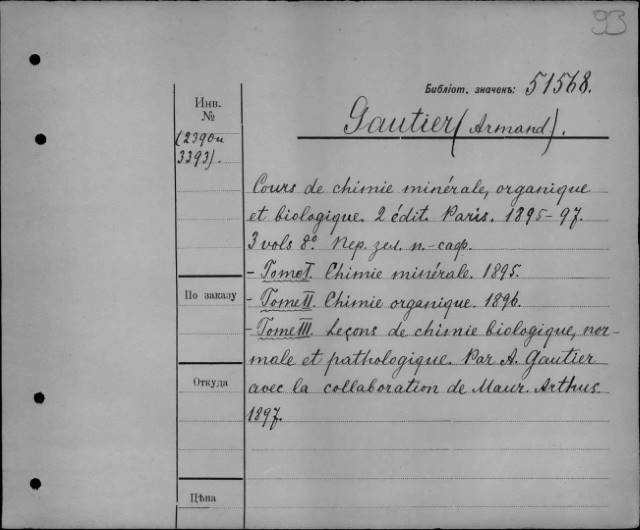 93
Библіот. значекъ: 51568.
Инв.
№
(2390 и
3393).
Gautier (Armand).
Cours de chimie minérale, organique
et biologique. 2 édit. Paris. 1895-97.
3 vols 8º. Пер. зел. п.-саф.
- Tome I. Chimie minérale. 1895.
По заказу
- Tome II. Chimie organique. 1896.
- Tome III. Leçons de chimie biologique, nor-
male et pathologique. Par A. Gautier
Откуда
avec la collaboration de Maur. Arthus.
1897.
Цѣна